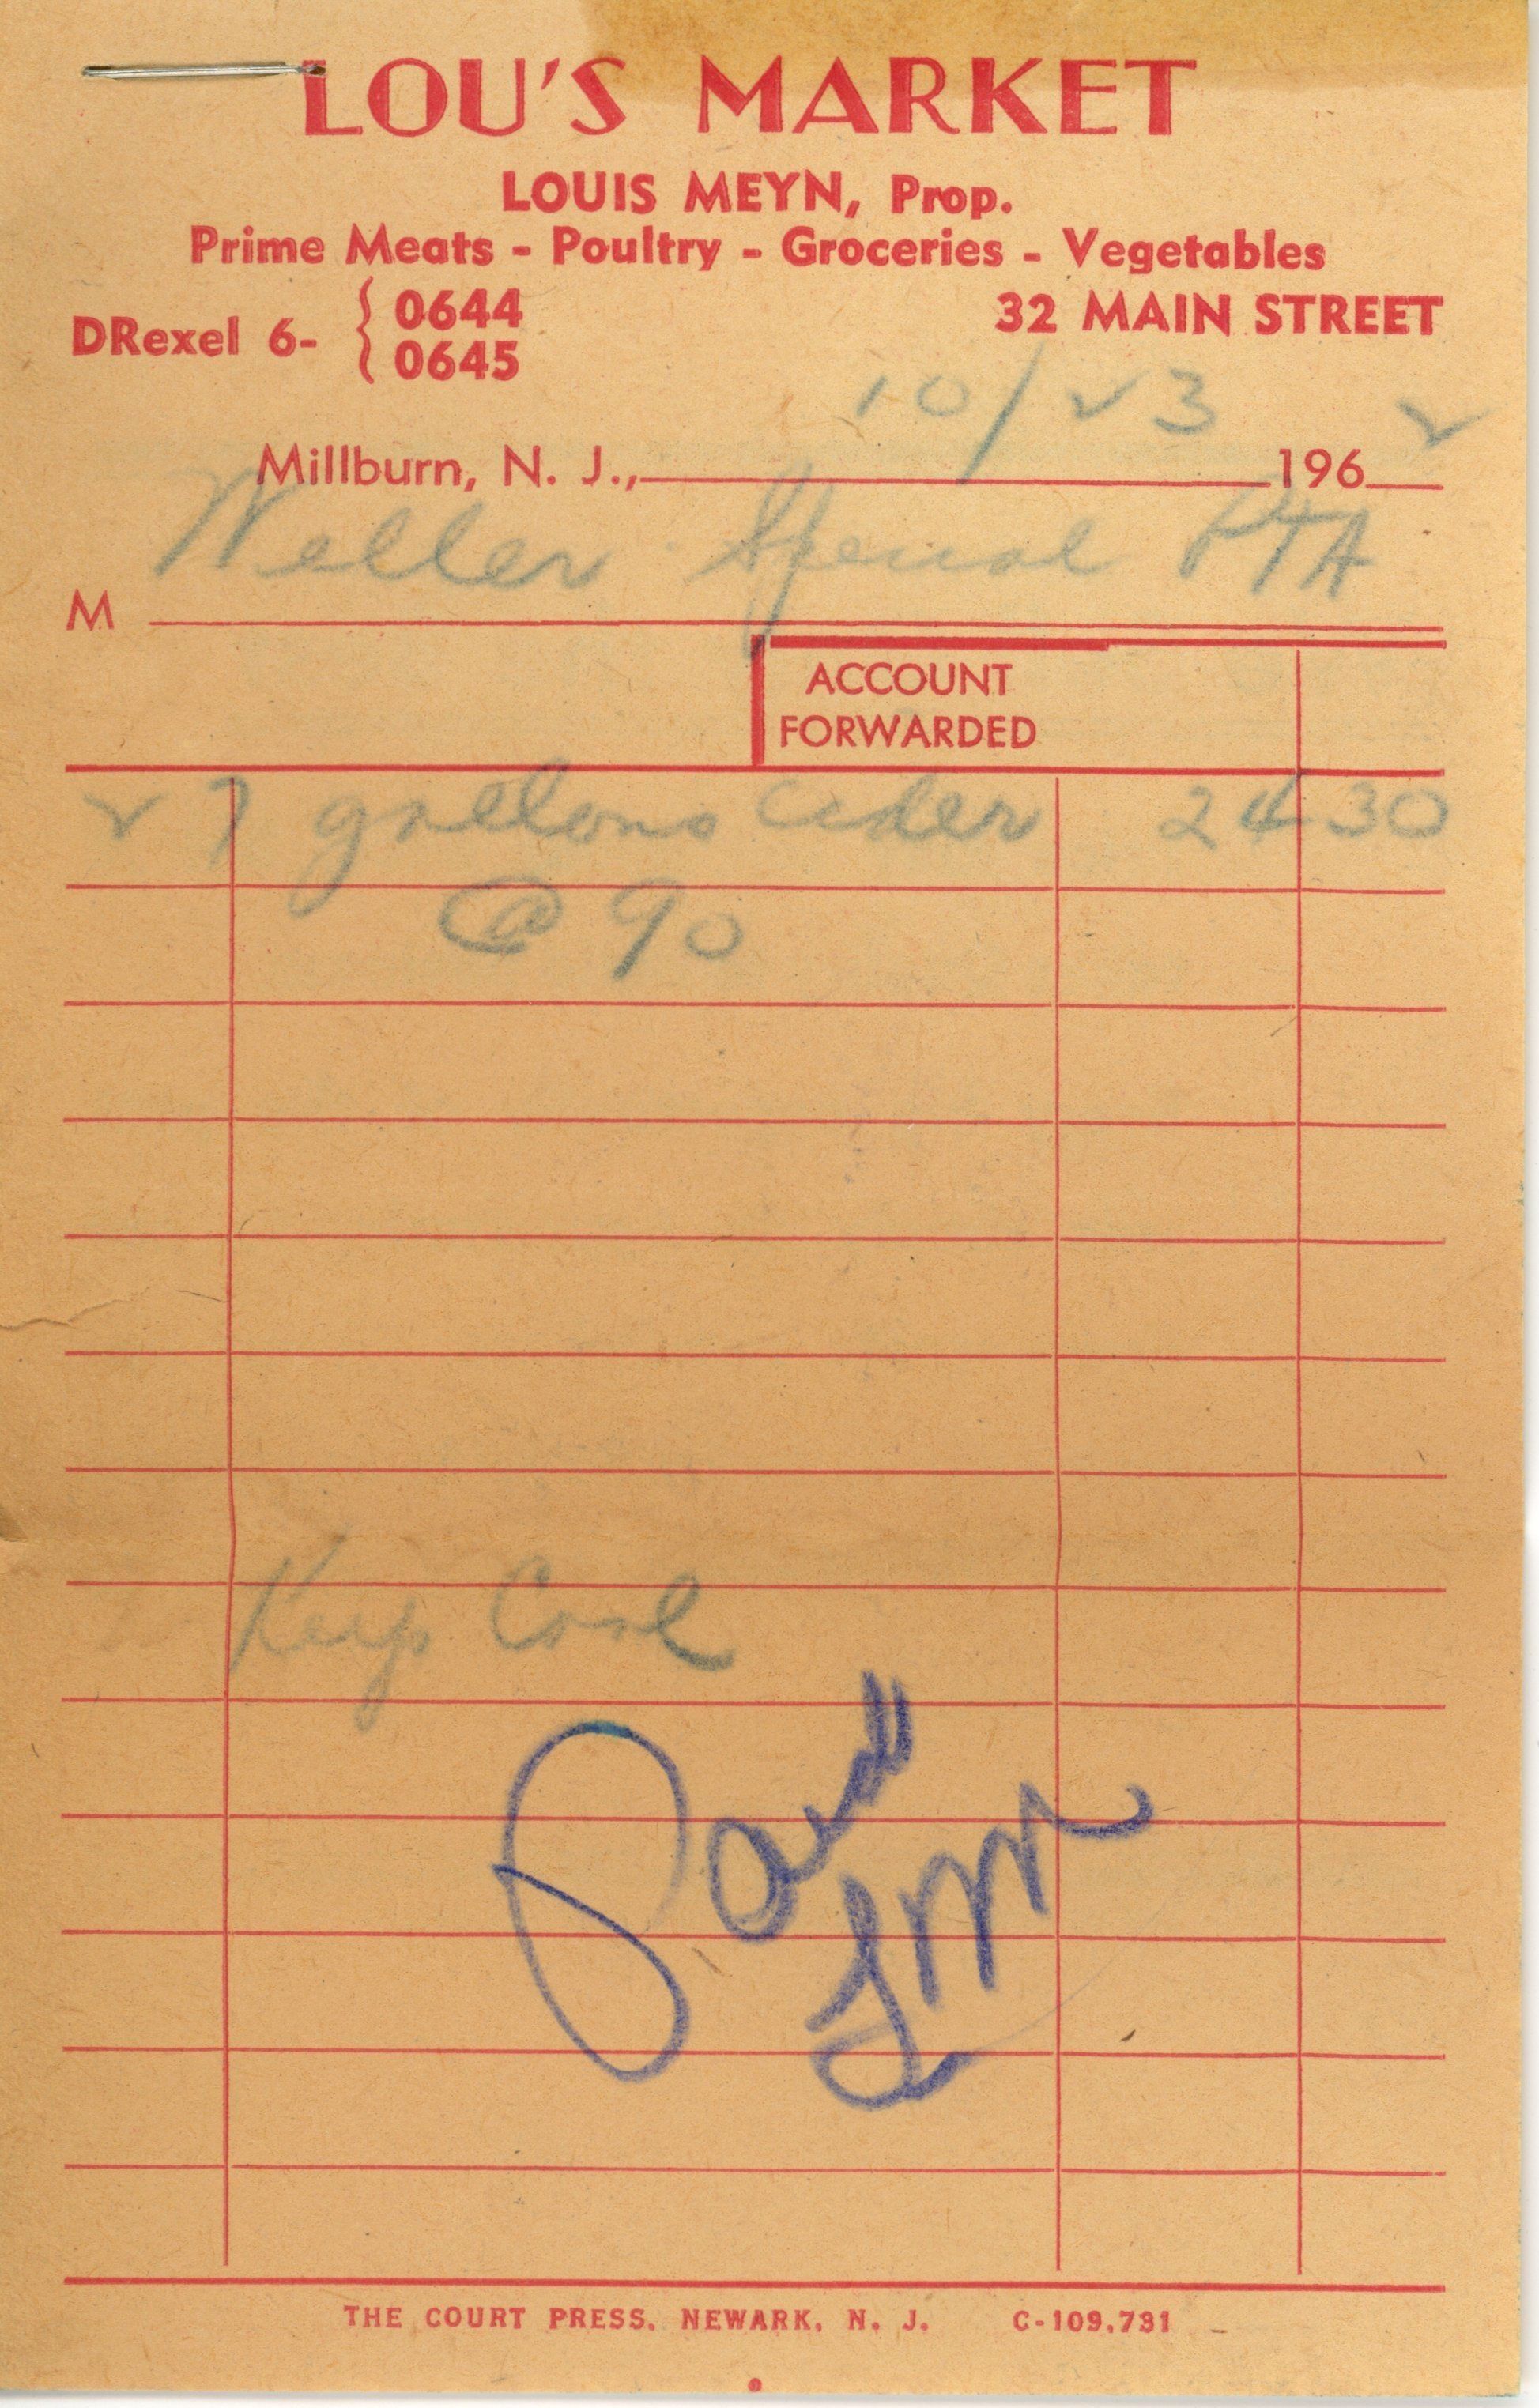 LOU'S MARKET
LOUIS MEYN, Prop.
Prime Meats - Poultry - Groceries - Vegetables
DRexel 6- { 0644 0645
32 MAIN STREET
10/23 2
Millburn, N. J., 196
Weller Special PTA
M
ACCOUNT
FORWARDED
27 gallons Cider 24 30
@ 90
Keep Cool
Paid
LM
THE COURT PRESS, NEWARK, N. J. C-109,731